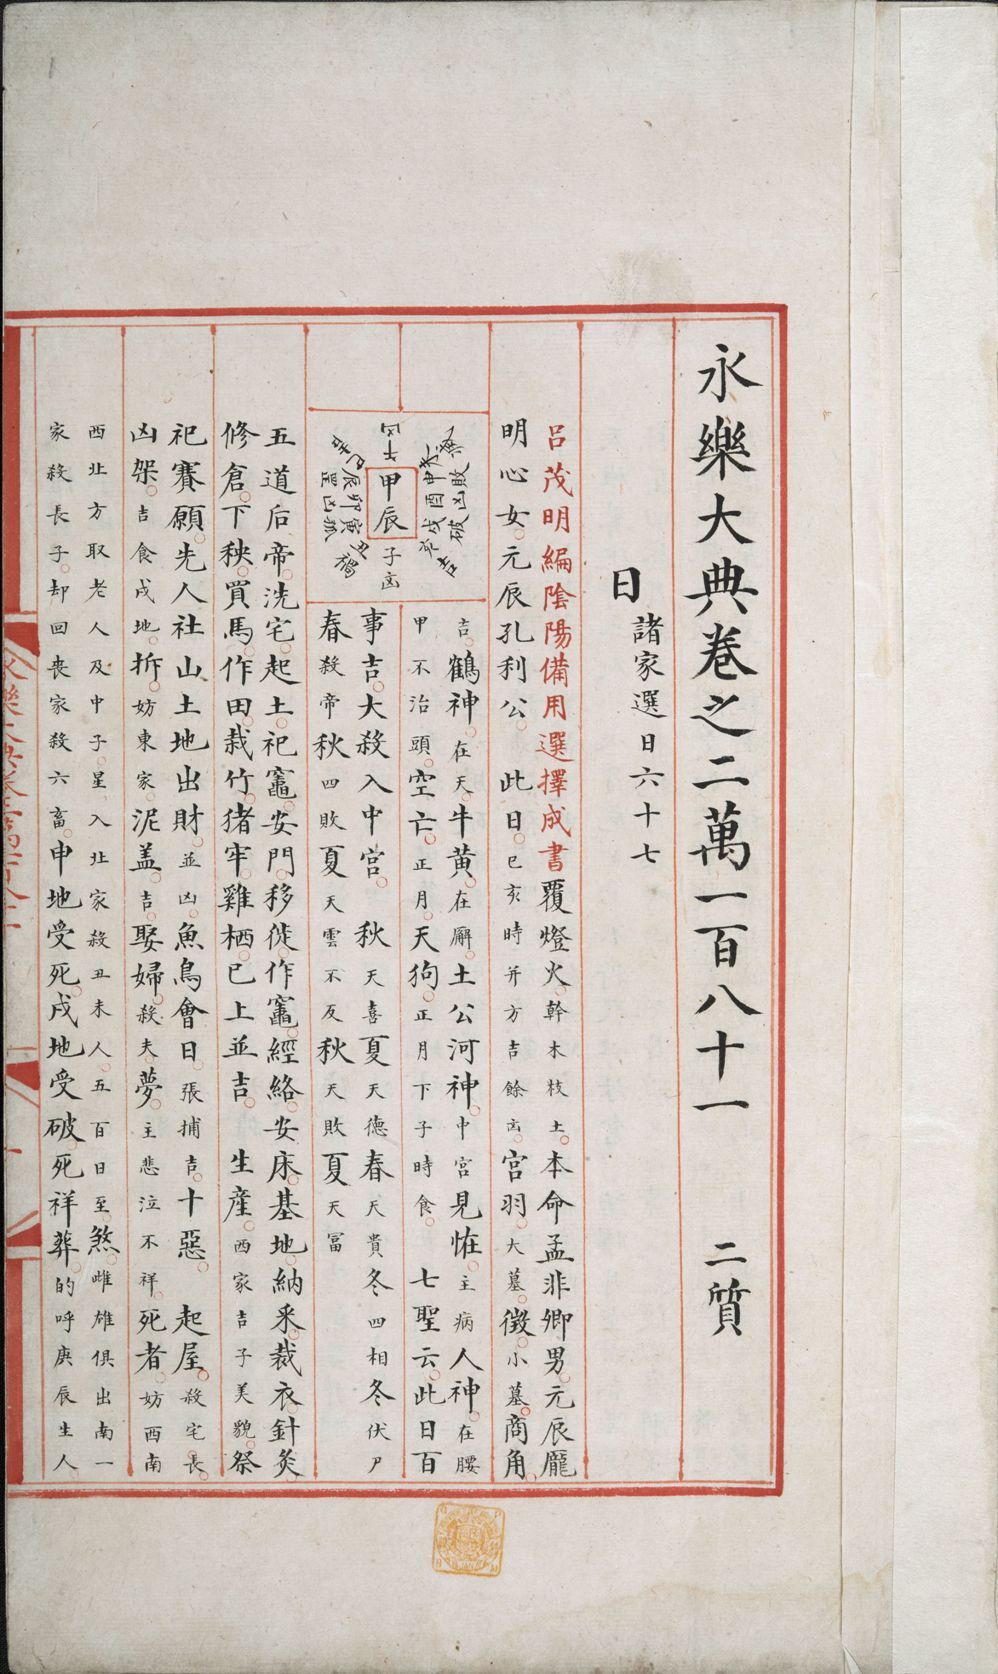 永樂大典卷之二萬一百八十一 二質
日 諸家選日六十七
呂茂明編陰陽備用選擇成書覆燈火幹木枝土本命孟非卿男元辰龎
明心女元辰孔利公 此日巳亥時并方吉餘凶宮羽大墓徵小墓商角
吉鶴神在天牛黄在廨土公河神中宮見恠主病人神在腰
甲不治頭空亡正月天狗正月下子時食 七聖云此日百
甲辰
子凶
事吉大殺入中宮 秋天喜夏天德春天貴冬四相冬伏尸
春殺帝秋四敗夏天雲不反秋天敗夏天富
五道后帝洗宅起土祀竈安門移徙作竈經絡安床基地納釆裁衣針灸
修倉下秧買馬作田栽竹猪牢雞栖巳上並吉 生産西家吉子美貌祭
祀賽願先人社山土地出財並凶魚鳥會日張捕吉十惡 起屋殺宅長
凶架吉食戍地拆妨東家泥盖吉娶婦殺夫夢主悲泣不祥死者妨西南
西北方取老人及中子星入北家殺丑未人五百日至煞雌雄俱出南一
家殺長子却回喪家殺六畜申地受死戍地受破死祥葬的呼庚辰生人